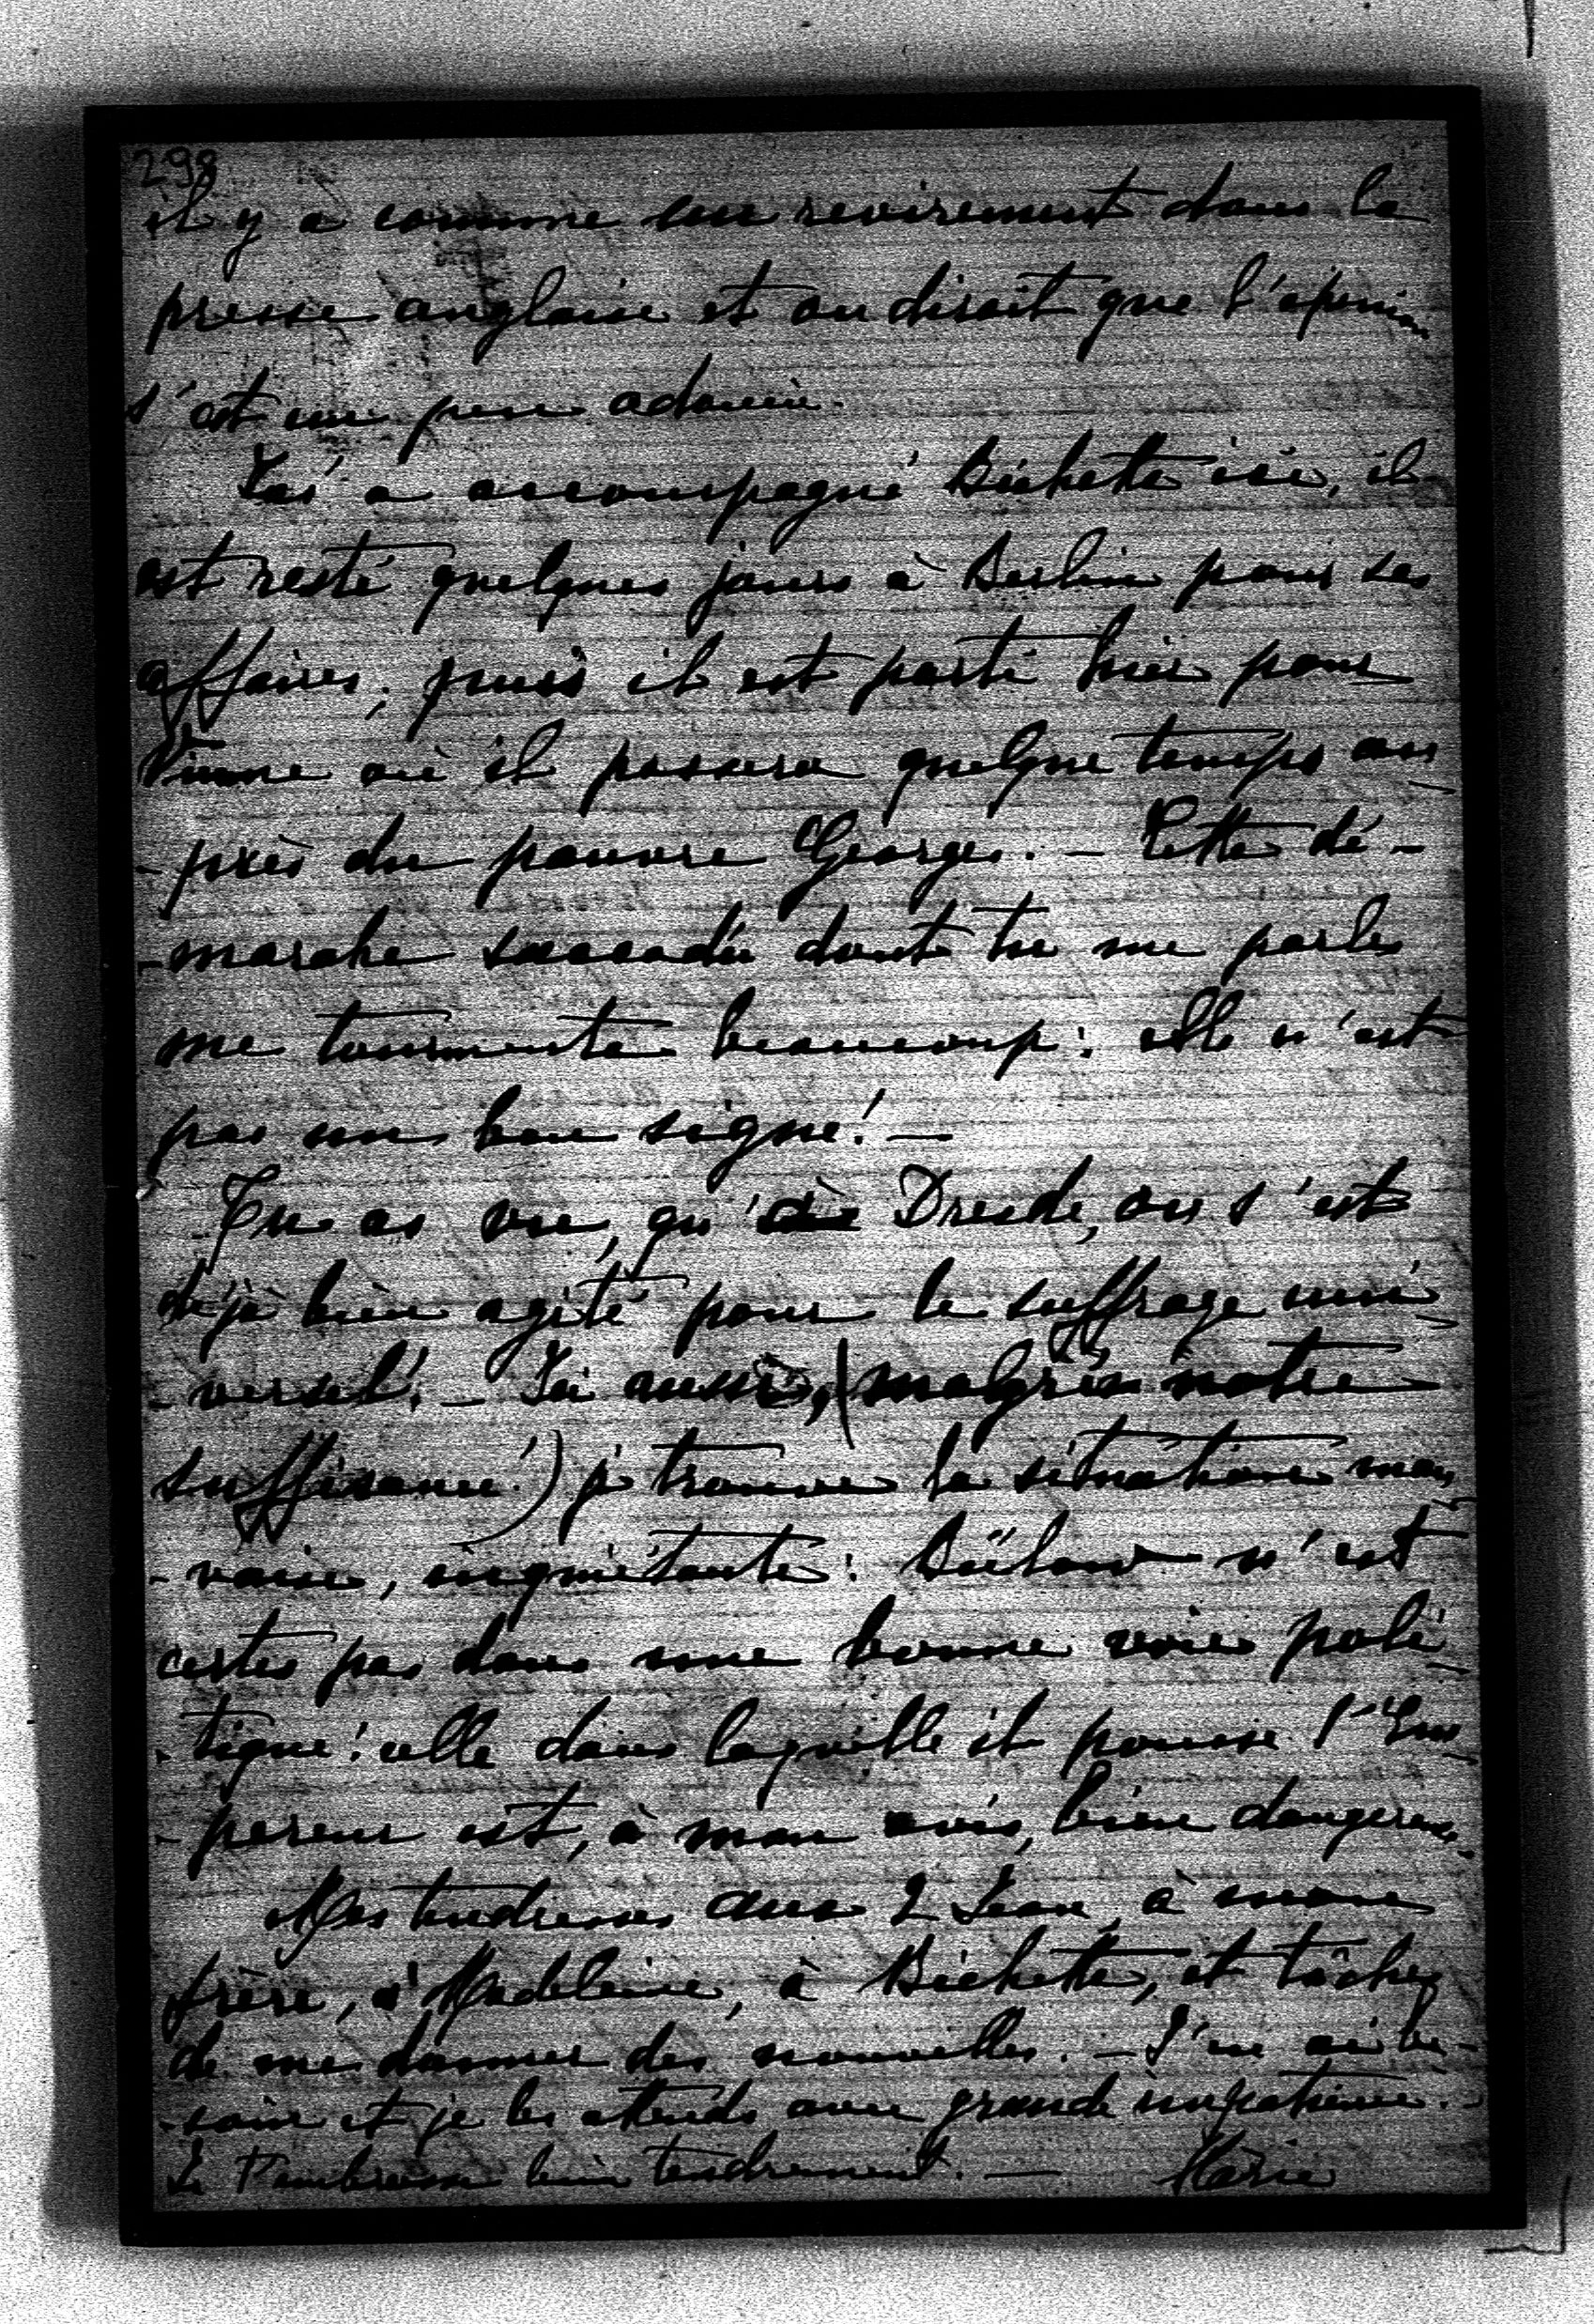 298
il y a comme un revirement dans la
presse anglaise et on dirait que l'opinion
s'est un peu adoucie.
a accompagné Bichette ici, il
est resté quelques jours à Berlin pour ses
affaires, puis il est parti hier pour
Vienne où il passera quelque temps au-
-près du pauvre Georges. - Cette dé-
-marche saccadée dont tu me parles
me tourmente beaucoup: elle n'est
pas un bon signe! -
Tu as vu, qu'à Dresde, on s'est
déjà bien agité pour le suffrage uni-
-versel! - Ici aussi, (malgré notre
suffisance!) je trouve la situation mau-
-vaise, inquiétante: Bülow n'est
certes pas dans une bonne voie poli-
-tique! celle dans laquelle il pousse l'Em-
-pereur est, à mon avis, bien dangereuse.
Mes tendresses aux 2 Jean, à mon
frère, à Madeleine, à Bichette, et tâchez
de me donner des nouvelles. - J'en ai be-
-soin et je les attends avec grande impatience. -
Je t'embrasse bien tendrement. - Marie